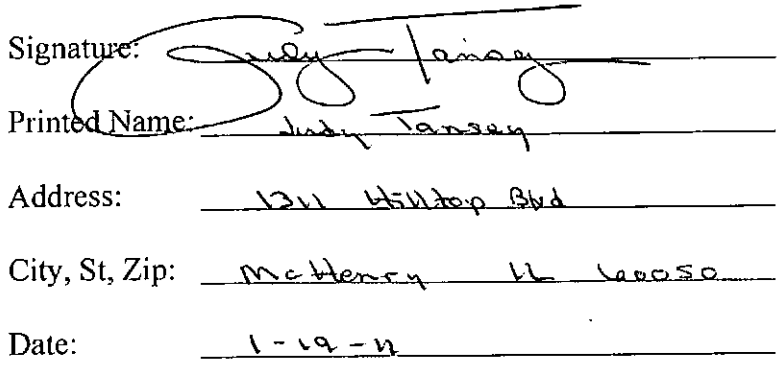 Signature: Judy Tansey
Printed Name: Judy Tansey
Address: 1311 Hilltop Blvd
City, St, Zip: McHenry IL 60050
Date: 1-19-11